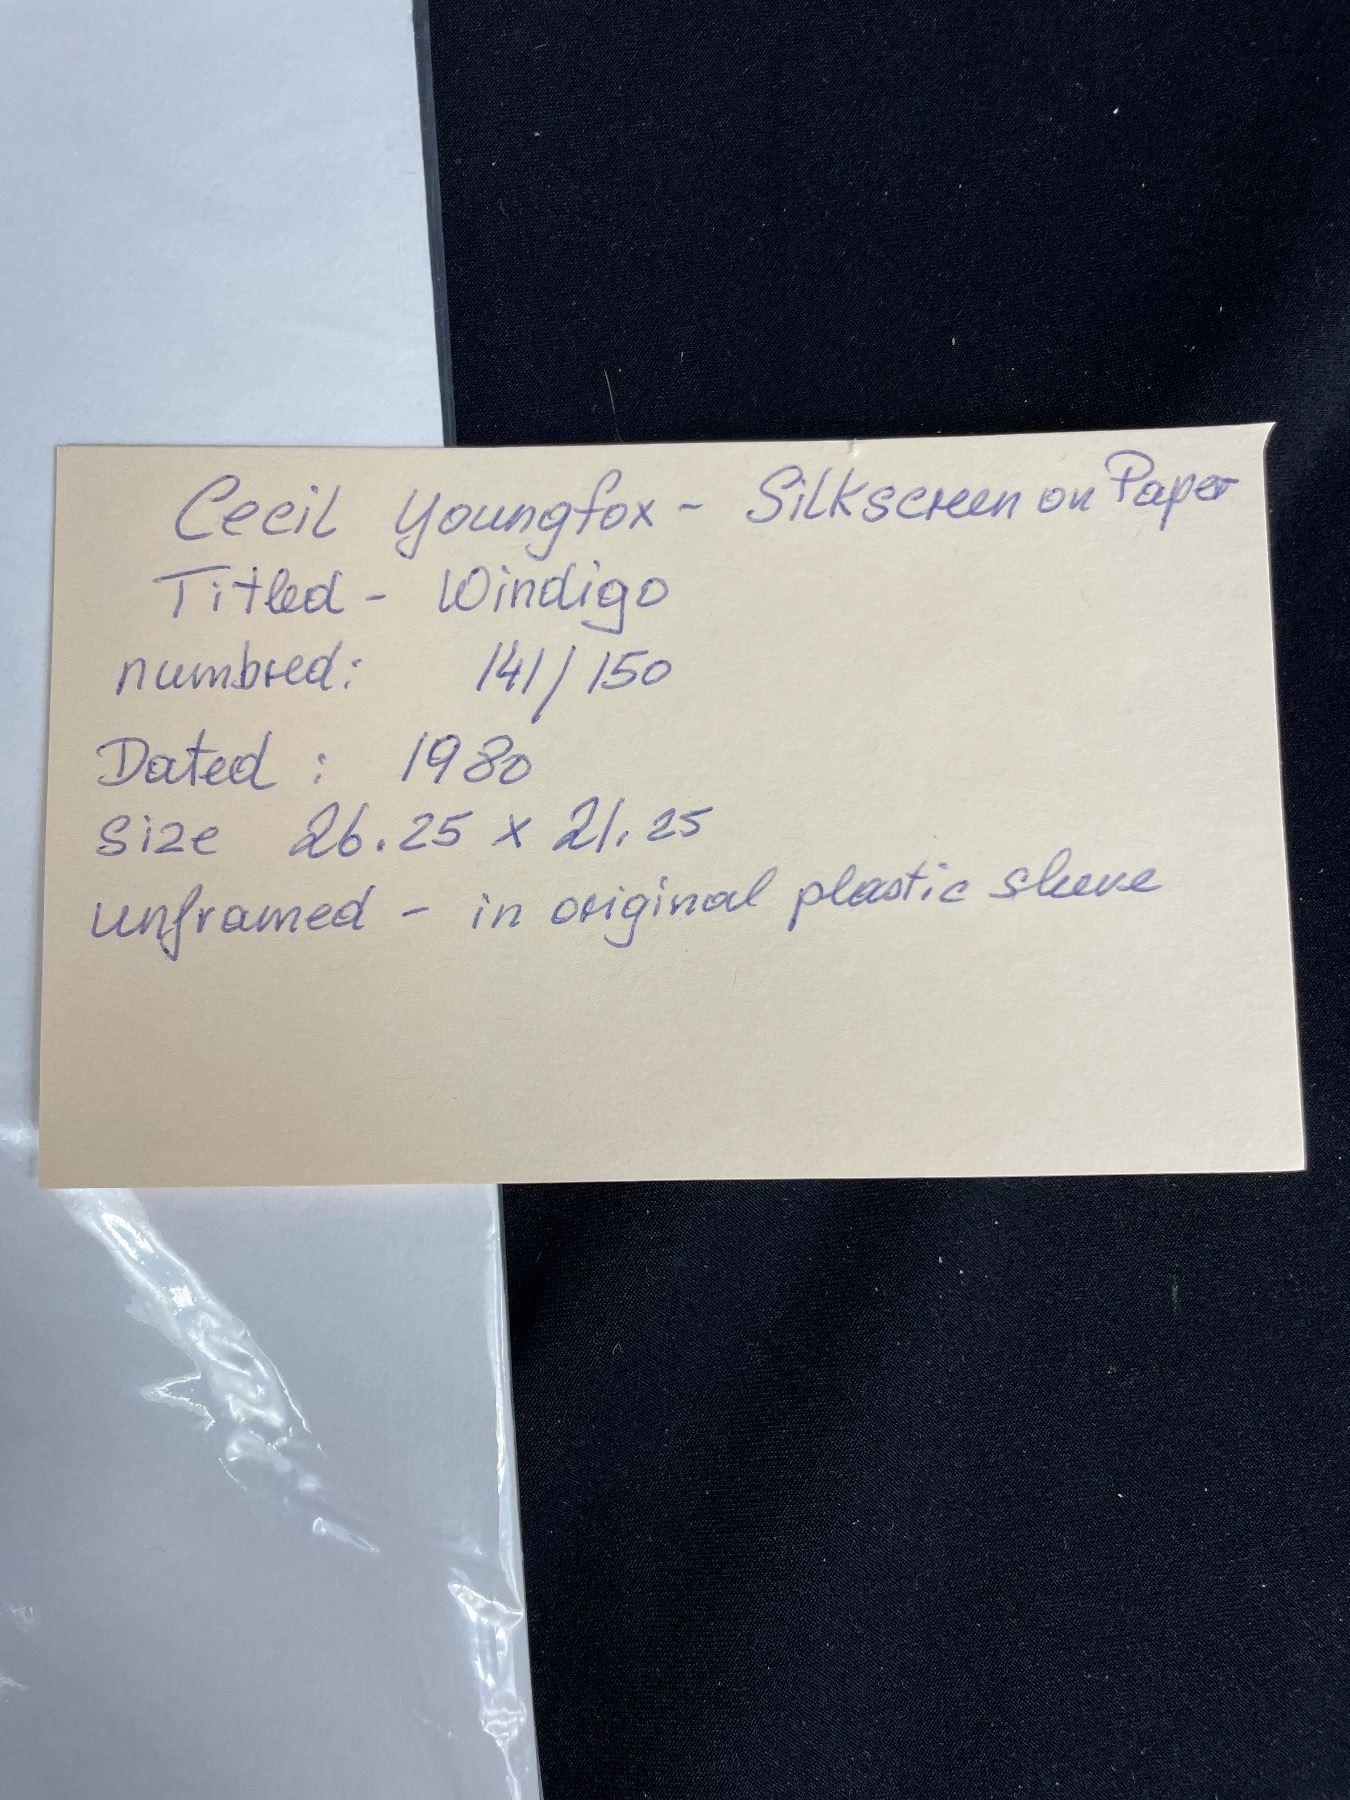 Cecil Youngfox - Silkscreen on Paper
Titled - Windigo
numbred: 141/150
Dated : 1980
Size 26.25 x 21.25
unframed - in original plastic sleeve